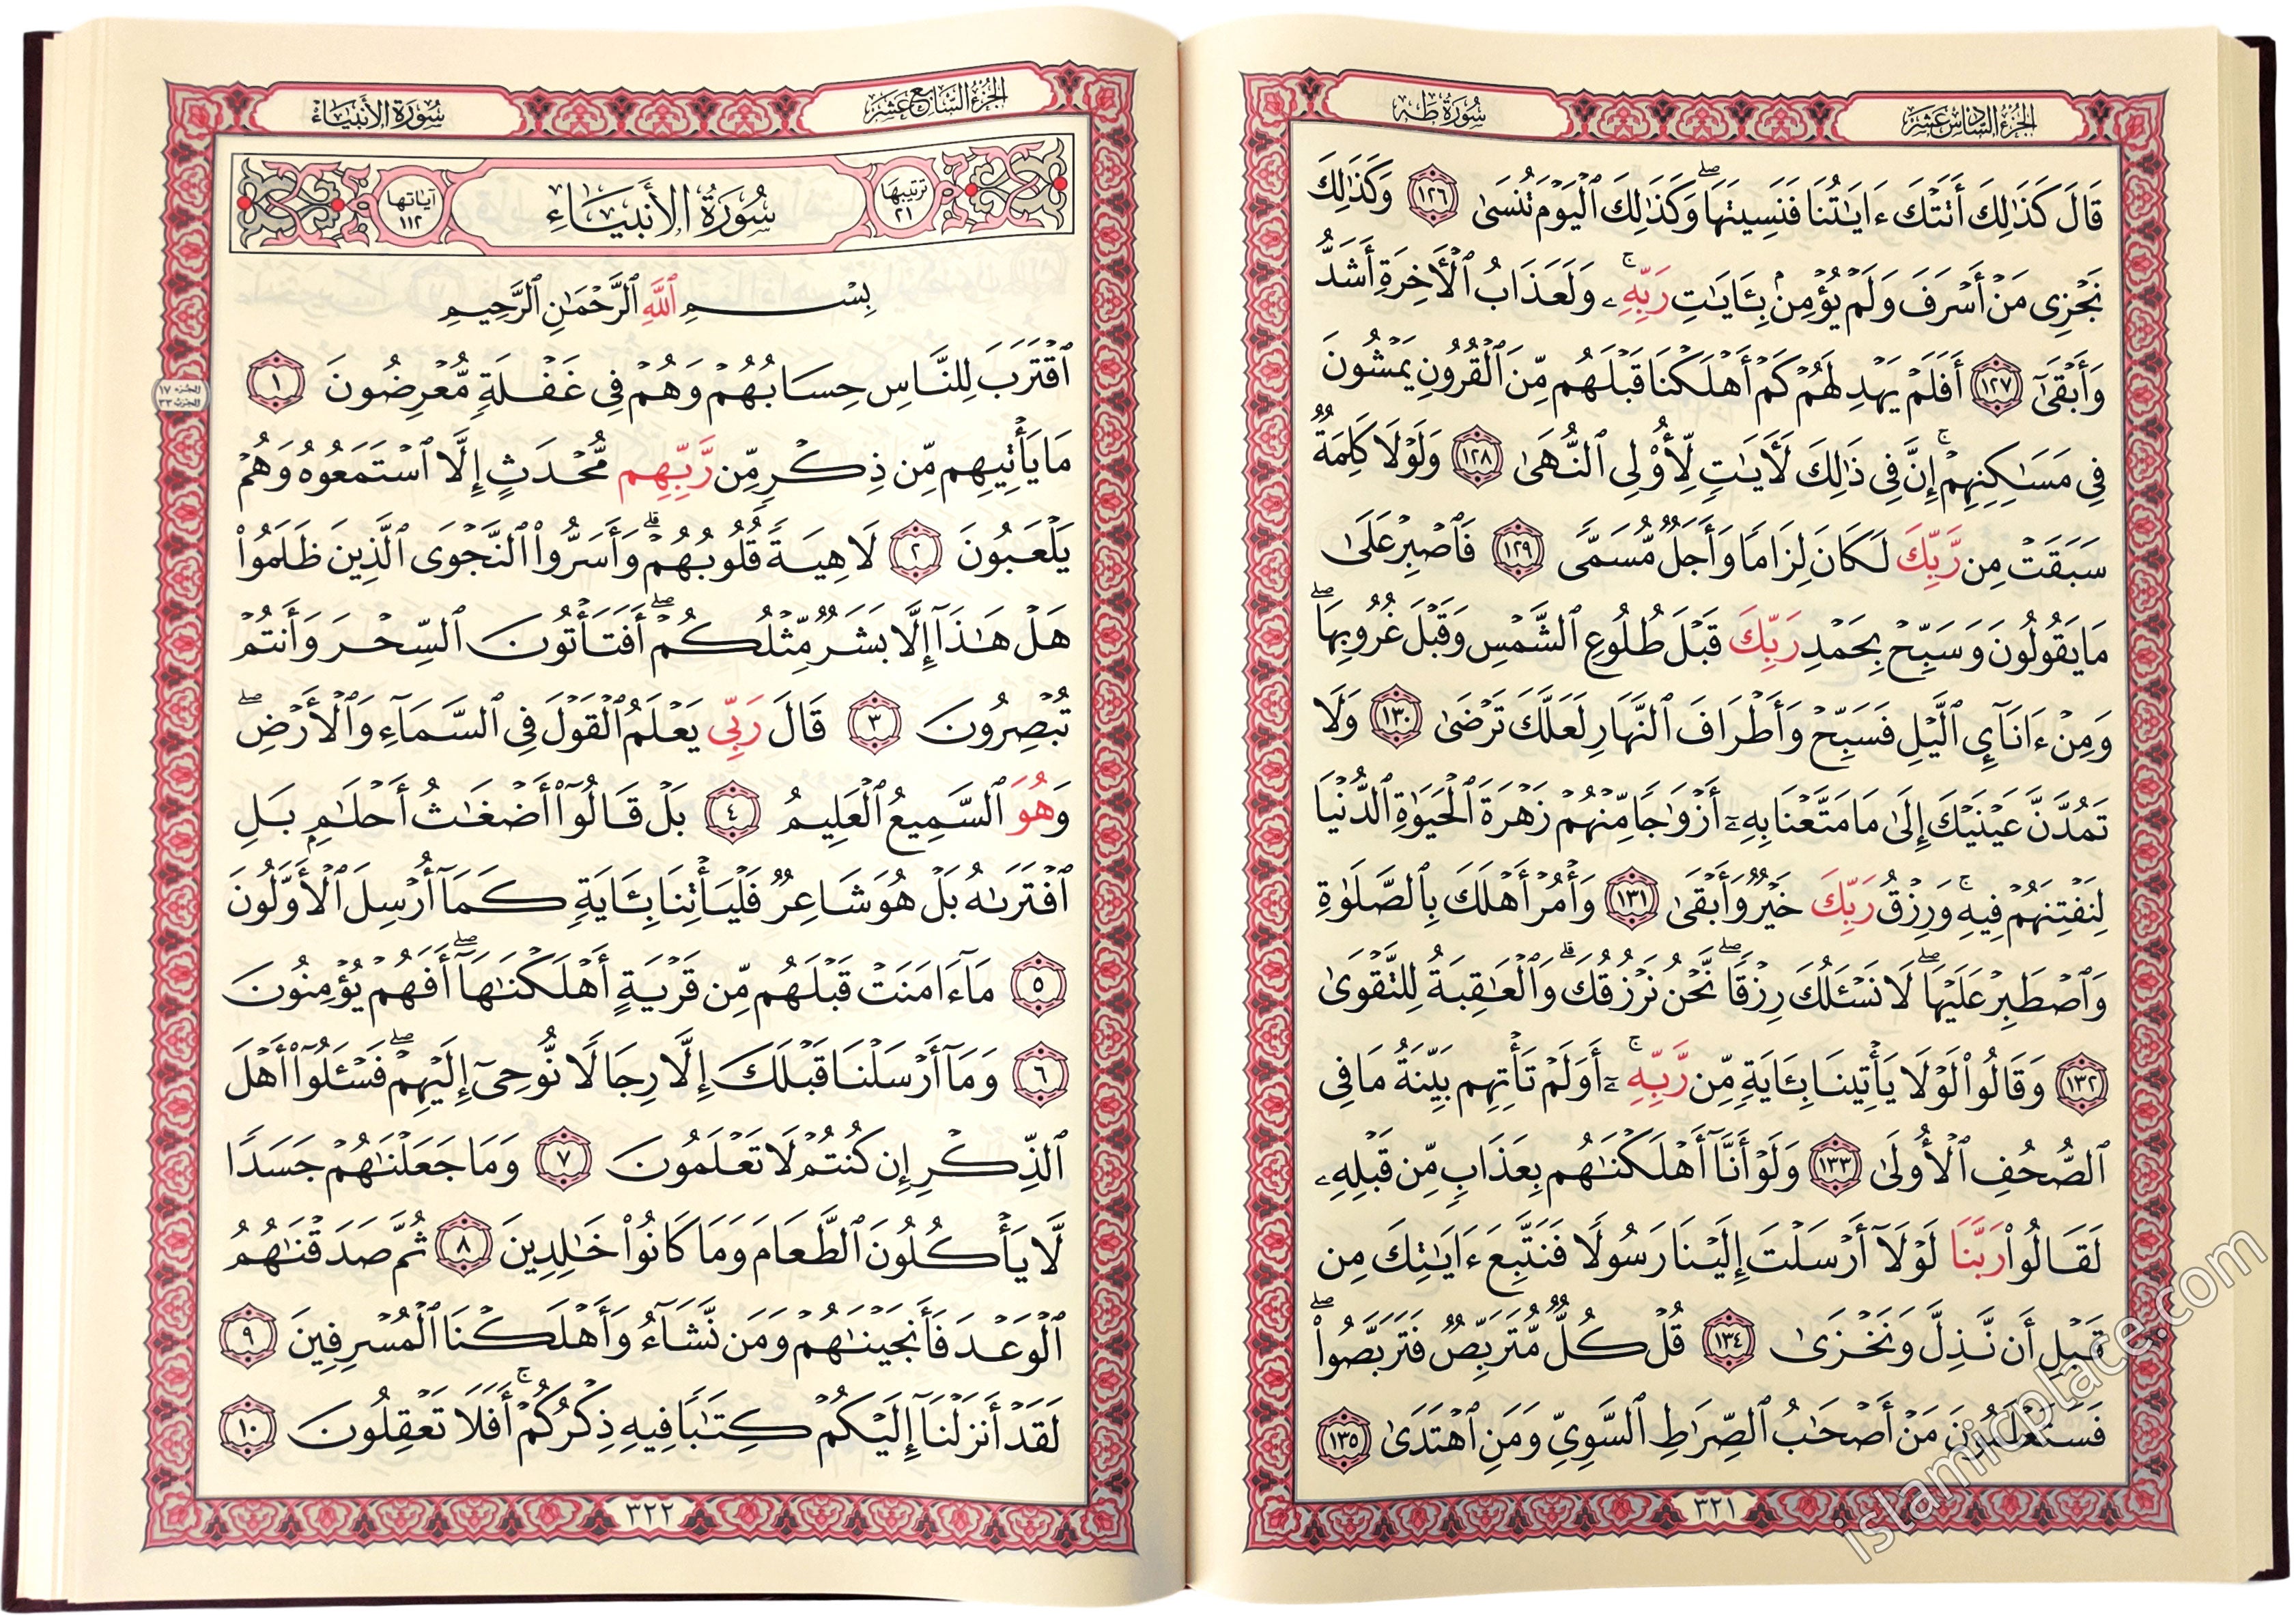 الجزء السادس عشر
سورة طه
قَالَ كَذَٰلِكَ أَتَتْكَ ءَايَٰتُنَا فَنَسِيتَهَا ۖ وَكَذَٰلِكَ ٱلْيَوْمَ تُنسَىٰ ١٢٦ وَكَذَٰلِكَ
نَجْزِى مَنْ أَسْرَفَ وَلَمْ يُؤْمِنۢ بِـَٔايَٰتِ رَبِّهِۦ ۚ وَلَعَذَابُ ٱلْءَاخِرَةِ أَشَدُّ
وَأَبْقَىٰٓ ١٢٧ أَفَلَمْ يَهْدِ لَهُمْ كَمْ أَهْلَكْنَا قَبْلَهُم مِّنَ ٱلْقُرُونِ يَمْشُونَ
فِى مَسَٰكِنِهِمْ ۚ إِنَّ فِى ذَٰلِكَ لَءَايَٰتٍ لِّأُو۟لِى ٱلنُّهَىٰ ١٢٨ وَلَوْلَا كَلِمَةٌ
سَبَقَتْ مِن رَّبِّكَ لَكَانَ لِزَامًا وَأَجَلٌ مُّسَمًّى ١٢٩ فَٱصْبِرْ عَلَىٰ
مَا يَقُولُونَ وَسَبِّحْ بِحَمْدِ رَبِّكَ قَبْلَ طُلُوعِ ٱلشَّمْسِ وَقَبْلَ غُرُوبِهَا ۖ
وَمِنْ ءَانَآئِ ٱلَّيْلِ فَسَبِّحْ وَأَطْرَافَ ٱلنَّهَارِ لَعَلَّكَ تَرْضَىٰ ١٣٠ وَلَا
تَمُدَّنَّ عَيْنَيْكَ إِلَىٰ مَا مَتَّعْنَا بِهِۦٓ أَزْوَٰجًا مِّنْهُمْ زَهْرَةَ ٱلْحَيَوٰةِ ٱلدُّنْيَا
لِنَفْتِنَهُمْ فِيهِ ۚ وَرِزْقُ رَبِّكَ خَيْرٌ وَأَبْقَىٰ ١٣١ وَأْمُرْ أَهْلَكَ بِٱلصَّلَوٰةِ
وَٱصْطَبِرْ عَلَيْهَا ۖ لَا نَسْـَٔلُكَ رِزْقًا ۖ نَّحْنُ نَرْزُقُكَ ۗ وَٱلْعَٰقِبَةُ لِلتَّقْوَىٰ
١٣٢ وَقَالُوا۟ لَوْلَا يَأْتِينَا بِـَٔايَةٍ مِّن رَّبِّهِۦٓ ۚ أَوَلَمْ تَأْتِهِم بَيِّنَةُ مَا فِى
ٱلصُّحُفِ ٱلْأُولَىٰ ١٣٣ وَلَوْ أَنَّآ أَهْلَكْنَٰهُم بِعَذَابٍ مِّن قَبْلِهِۦ
لَقَالُوا۟ رَبَّنَا لَوْلَآ أَرْسَلْتَ إِلَيْنَا رَسُولًا فَنَتَّبِعَ ءَايَٰتِكَ مِن
قَبْلِ أَن نَّذِلَّ وَنَخْزَىٰ ١٣٤ قُلْ كُلٌّ مُّتَرَبِّصٌ فَتَرَبَّصُوا۟ ۖ
فَسَتَعْلَمُونَ مَنْ أَصْحَٰبُ ٱلصِّرَٰطِ ٱلسَّوِىِّ وَمَنِ ٱهْتَدَىٰ ١٣٥
٣٢١
الجزء السابع عشر
سورة الأنبياء
ترتيبها
٢١
سُورَةُ الأَنبيَاءِ
آياتها
١١٢
بِسْمِ ٱللَّهِ ٱلرَّحْمَٰنِ ٱلرَّحِيمِ
ٱقْتَرَبَ لِلنَّاسِ حِسَابُهُمْ وَهُمْ فِى غَفْلَةٍ مُّعْرِضُونَ ١
الجزء ١٧
الحزب ٣٣
مَا يَأْتِيهِم مِّن ذِكْرٍ مِّن رَّبِّهِم مُّحْدَثٍ إِلَّا ٱسْتَمَعُوهُ وَهُمْ
يَلْعَبُونَ ٢ لَاهِيَةً قُلُوبُهُمْ ۗ وَأَسَرُّوا۟ ٱلنَّجْوَى ٱلَّذِينَ ظَلَمُوا۟
هَلْ هَٰذَآ إِلَّا بَشَرٌ مِّثْلُكُمْ ۖ أَفَتَأْتُونَ ٱلسِّحْرَ وَأَنتُمْ
تُبْصِرُونَ ٣ قَالَ رَبِّى يَعْلَمُ ٱلْقَوْلَ فِى ٱلسَّمَآءِ وَٱلْأَرْضِ ۖ
وَهُوَ ٱلسَّمِيعُ ٱلْعَلِيمُ ٤ بَلْ قَالُوٓا۟ أَضْغَٰثُ أَحْلَٰمٍ بَلِ
ٱفْتَرَىٰهُ بَلْ هُوَ شَاعِرٌ فَلْيَأْتِنَا بِـَٔايَةٍ كَمَآ أُرْسِلَ ٱلْأَوَّلُونَ
٥ مَآ ءَامَنَتْ قَبْلَهُم مِّن قَرْيَةٍ أَهْلَكْنَٰهَآ ۖ أَفَهُمْ يُؤْمِنُونَ
٦ وَمَآ أَرْسَلْنَا قَبْلَكَ إِلَّا رِجَالًا نُّوحِىٓ إِلَيْهِمْ ۖ فَسْـَٔلُوٓا۟ أَهْلَ
ٱلذِّكْرِ إِن كُنتُمْ لَا تَعْلَمُونَ ٧ وَمَا جَعَلْنَٰهُمْ جَسَدًا
لَّا يَأْكُلُونَ ٱلطَّعَامَ وَمَا كَانُوا۟ خَٰلِدِينَ ٨ ثُمَّ صَدَقْنَٰهُمُ
ٱلْوَعْدَ فَأَنجَيْنَٰهُمْ وَمَن نَّشَآءُ وَأَهْلَكْنَا ٱلْمُسْرِفِينَ ٩
لَقَدْ أَنزَلْنَآ إِلَيْكُمْ كِتَٰبًا فِيهِ ذِكْرُكُمْ ۖ أَفَلَا تَعْقِلُونَ ١٠
٣٢٢
islamicplace.com